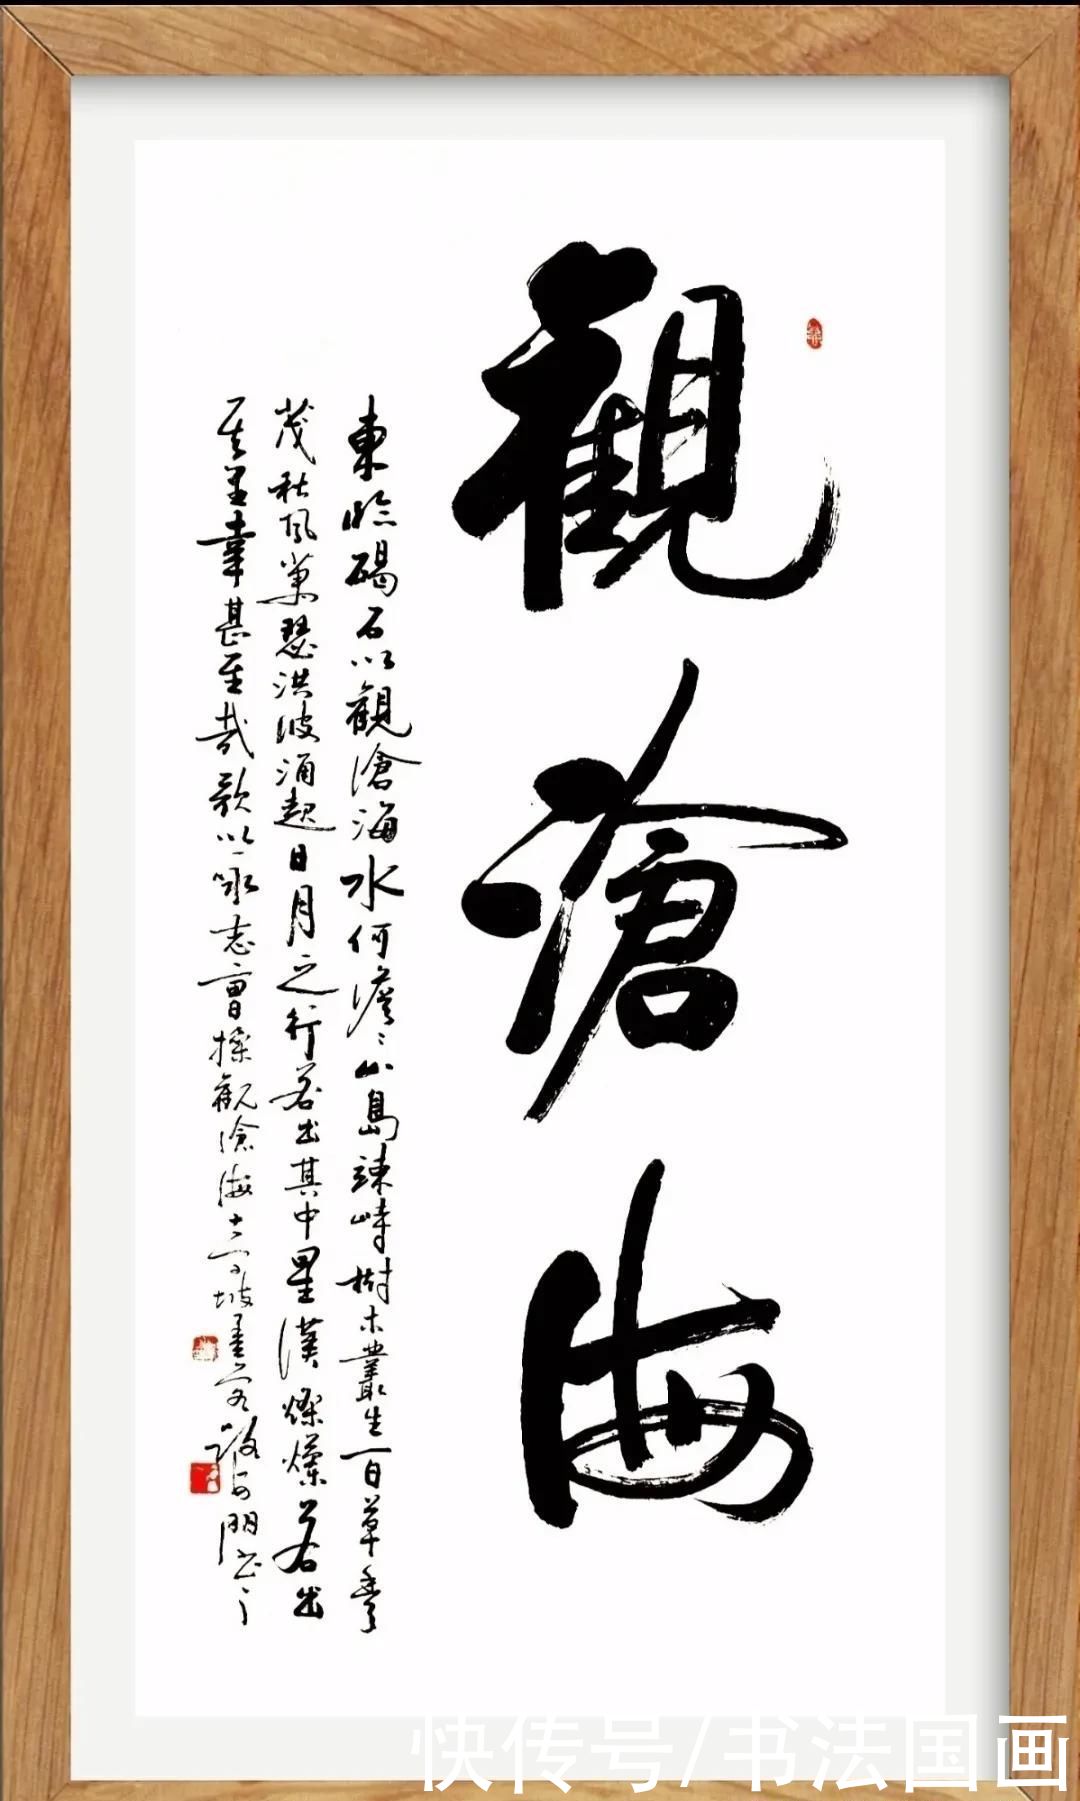 觀滄海
東臨碣石以觀滄海水何澹〻山島竦峙樹木叢生百草豐
茂秋風蕭瑟洪波涌起日月之行若出其中星漢燦爛若出
其里幸甚至哉歌以咏志曹操觀滄海
快传号/书法国画